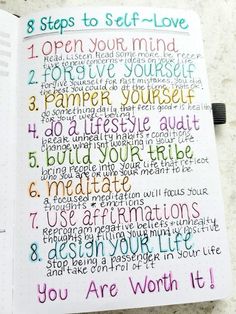 8 Steps to Self~Love
1. open your mind
Read. Listen. Read some more. Be
review concerns & ideas on your life.
2. forgive yourself
forgive yourself for past mistakes. You did
the best you could do at the time. That's
3. pamper yourself
do something daily that feels good & is healthy
for your well-being!
4. do a lifestyle audit
break unhealthy habits & conditions,
change what isn't working in your life.
5. build your tribe
bring people into your life that reflect
who you are or who your meant to be.
6. meditate
a focused meditation will focus your
thoughts & emotions
7. use affirmations
Reprogram negative beliefs & unhealthy
thoughts by filling your mind w/ positive
8. design your life
Stop being a passenger in your life
and take control of it
You Are Worth It!